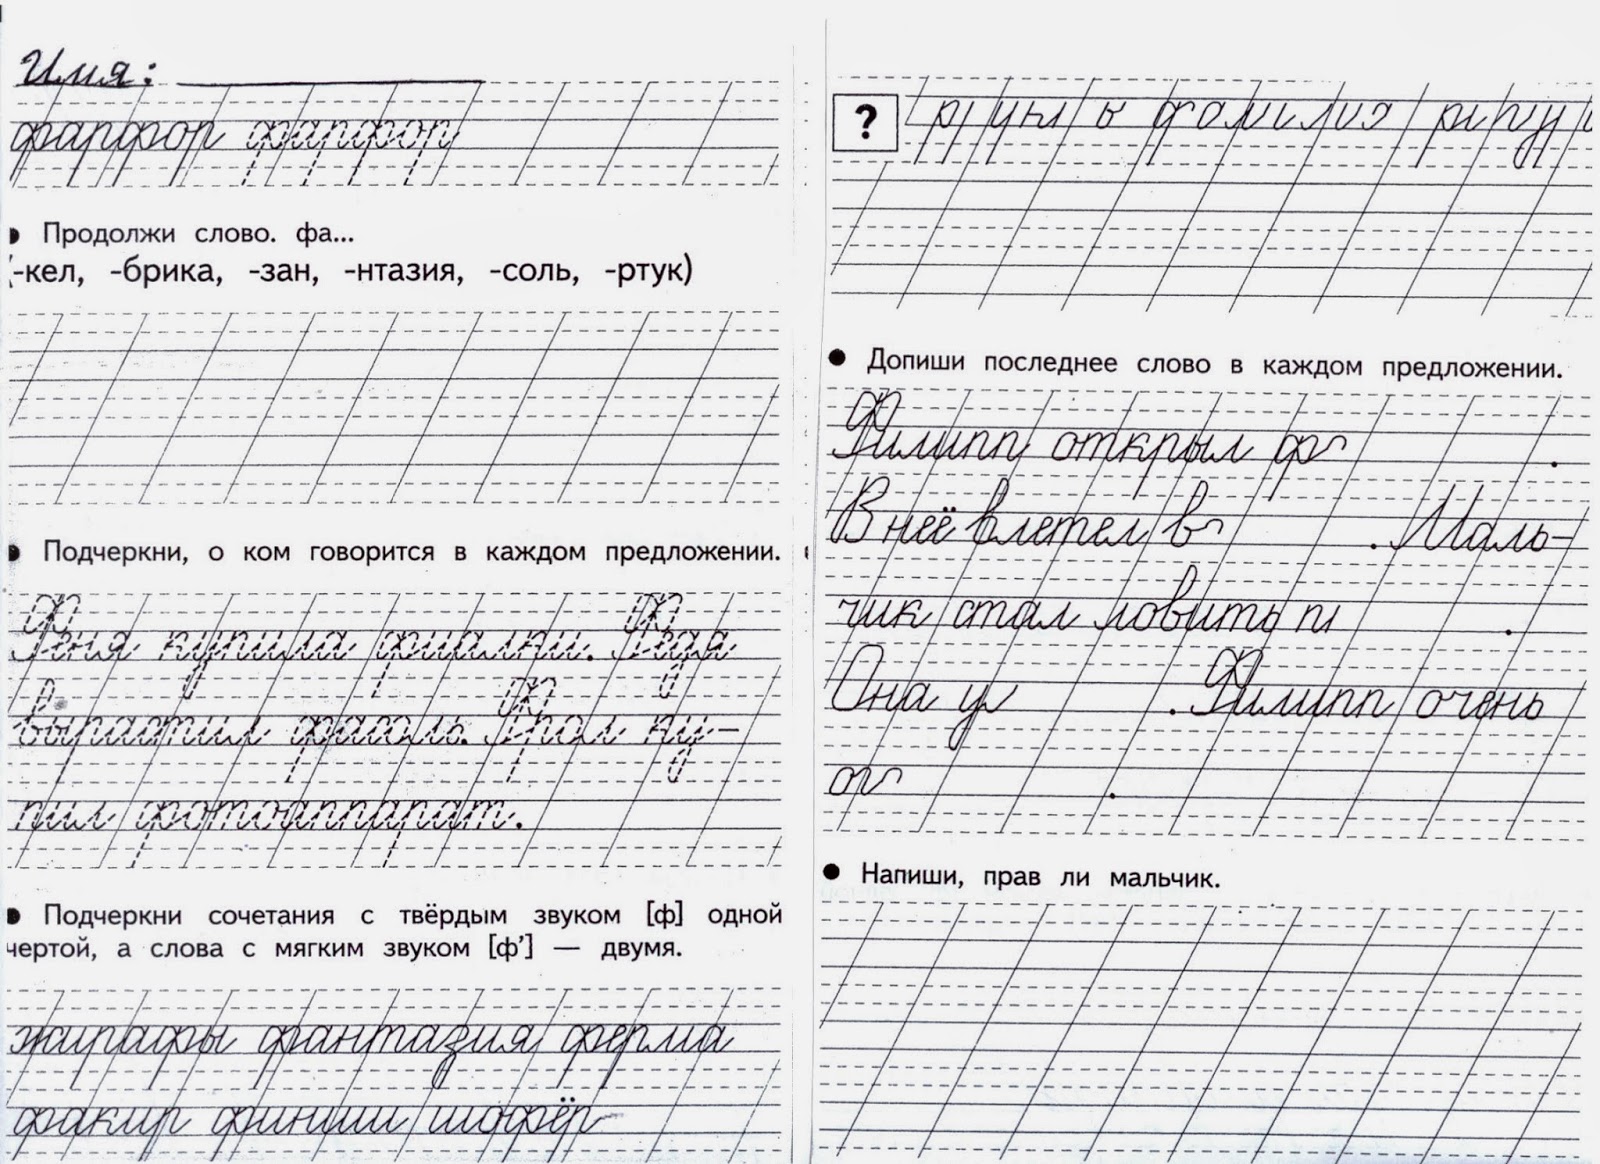 Имя:
фарфор фарфор
Продолжи слово. фа...
(-кел, -брика, -зан, -нтазия, -соль, -ртук)
Подчеркни, о ком говорится в каждом предложении.
Феня купила фиалки. Федя
вырастил фасоль. Фрол ку-
пил фотоаппарат.
Подчеркни сочетания с твёрдым звуком [ф] одной
чертой, а слова с мягким звуком [ф’] — двумя.
жирафы фантазия ферма
факир финиш шофёр
?
Допиши последнее слово в каждом предложении.
Филипп открыл ф .
В неё влетел в . Маль-
чик стал ловить п .
Она у . Филипп очень
о .
Напиши, прав ли мальчик.